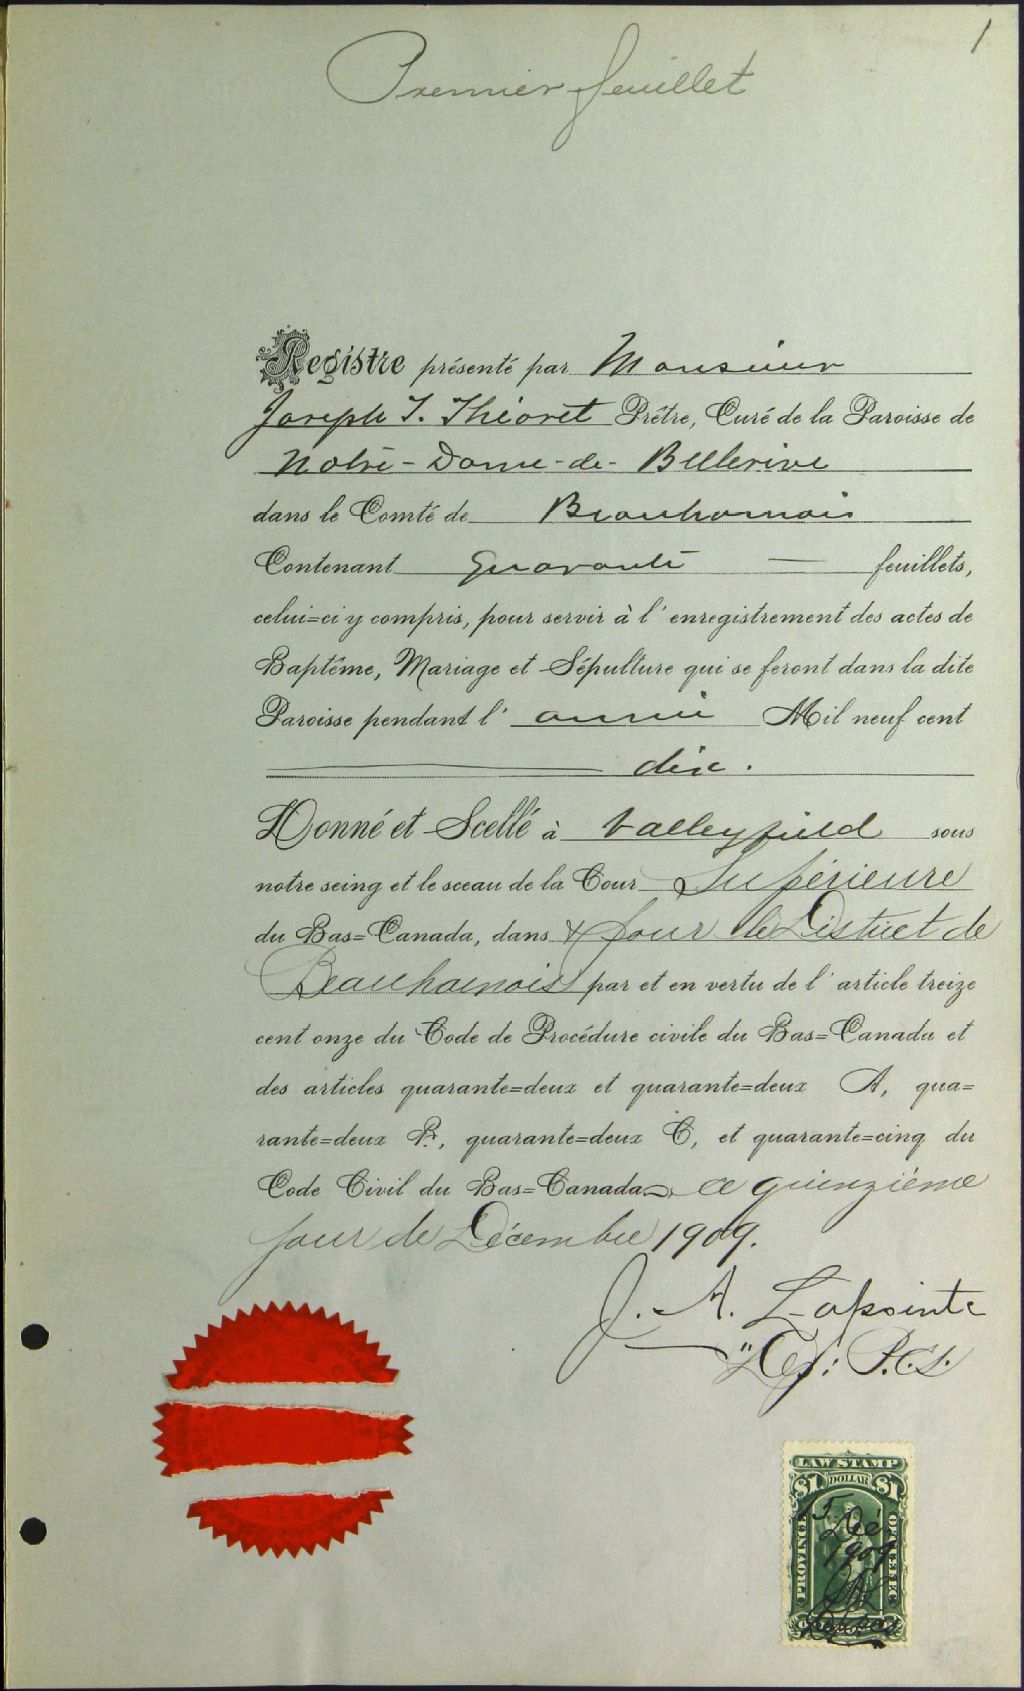 1
Premier feuillet
Registre présenté par Monsieur
Joseph T. Théoret Prêtre, Curé de la Paroisse de
Notre-Dame-de-Bellerive
dans le Comté de Beauharnois
Contenant Quarante — feuillets,
celui=ci y compris, pour servir à l'enregistrement des actes de
Baptême, Mariage et Sépulture qui se feront dans la dite
Paroisse pendant l'année Mil neuf cent
dix.
Donné et Scellé à Valleyfield sous
notre seing et le sceau de la Cour Supérieure
du Bas=Canada, dans & pour le District de
Beauharnois par et en vertu de l'article treize
cent onze du Code de Procédure civile du Bas=Canada et
des articles quarante=deux et quarante=deux A, qua=
rante=deux B., quarante=deux C, et quarante=cinq du
Code Civil du Bas=Canada, ce quinzième
jour de Décembre 1909.
J. A. Lapointe
"Dep: P.C.S.
LAW STAMP
$1 DOLLAR $1
PROVINCE OF QUEBEC
15 Déc
1909